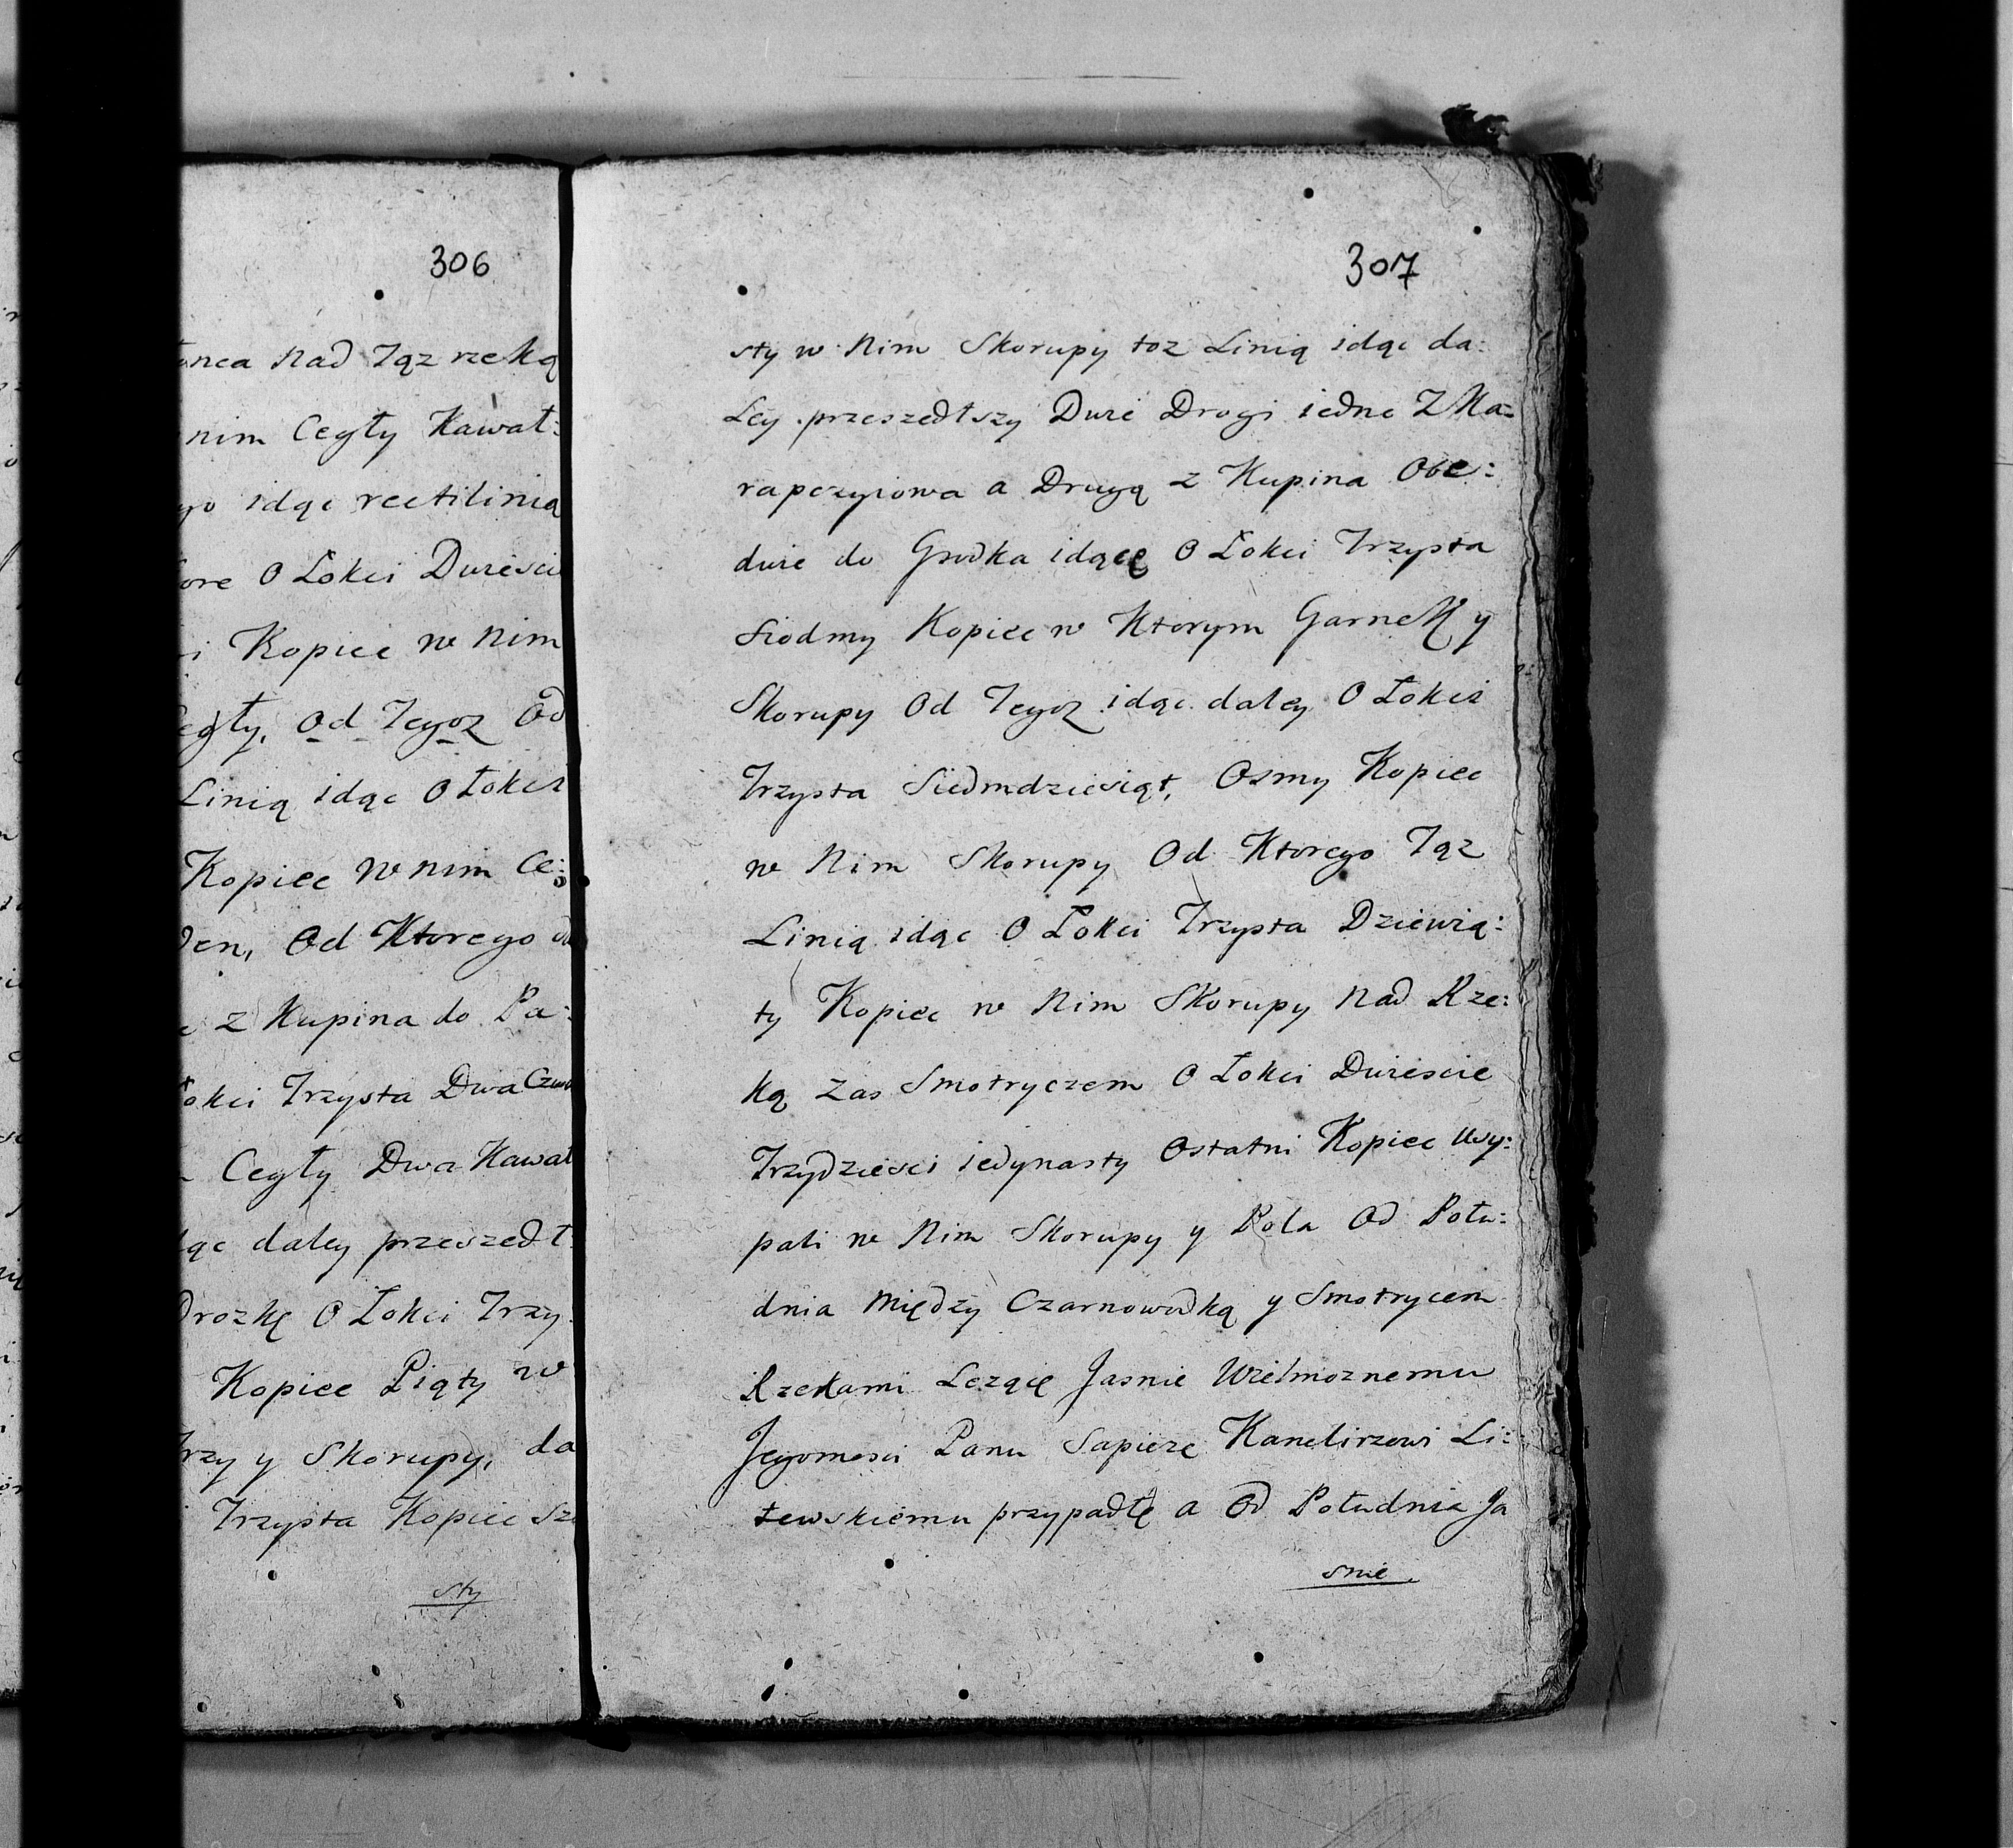 306
nad Tąz rzeką
nim Cegły Kawał:
idąc rectilinia
O Łokci Dwieście
Kopiec w nim
Od Tegoz Od
Linią idąc O Łokci
Kopiec w nim Ce:
Od Ktorego
z Kupina do Pa:
Trzysta Dwa
Cegły Dwa Kawał
daley przeszedł
O Łokci Trzy
Kopiec Piąty w
y Skorupy, da
Trzysta Kopiec Sz
sty
307
sty w Nim Skorupy toz Linią idąc da:
Ley przeszedłszy Dwie Drogi iedne Z Ka:
rapczyiowa a Drugą z Kupina Obe:
dwie do Grodka idącę O Łokci Trzysta
Siodmy Kopiec w Ktorym Garnek y
Skorupy Od Tegoz idąc daley O Łokci
Trzysta Siedmdziesiąt, Osmy Kopiec
w Nim Skorupy Od Ktorego Tąz
Linią idąc O Łokci Trzysta Dziewią:
ty Kopiec w Nim Skorupy Nad Rze:
ką Zas Smotryczem O Łokci Dwieście
Trzydzieści iedynasty Ostatni Kopiec Usy:
pali w Nim Skorupy y Pola Od Połu:
dnia Między Czarnowodką y Smotrycem
Rzekami Lezącę Jasnie Wielmoznemu
Jegomosci Panu Sapieze Kanclirzowi Li:
tewskiemu przypadłę a Od Południa Ja
snie